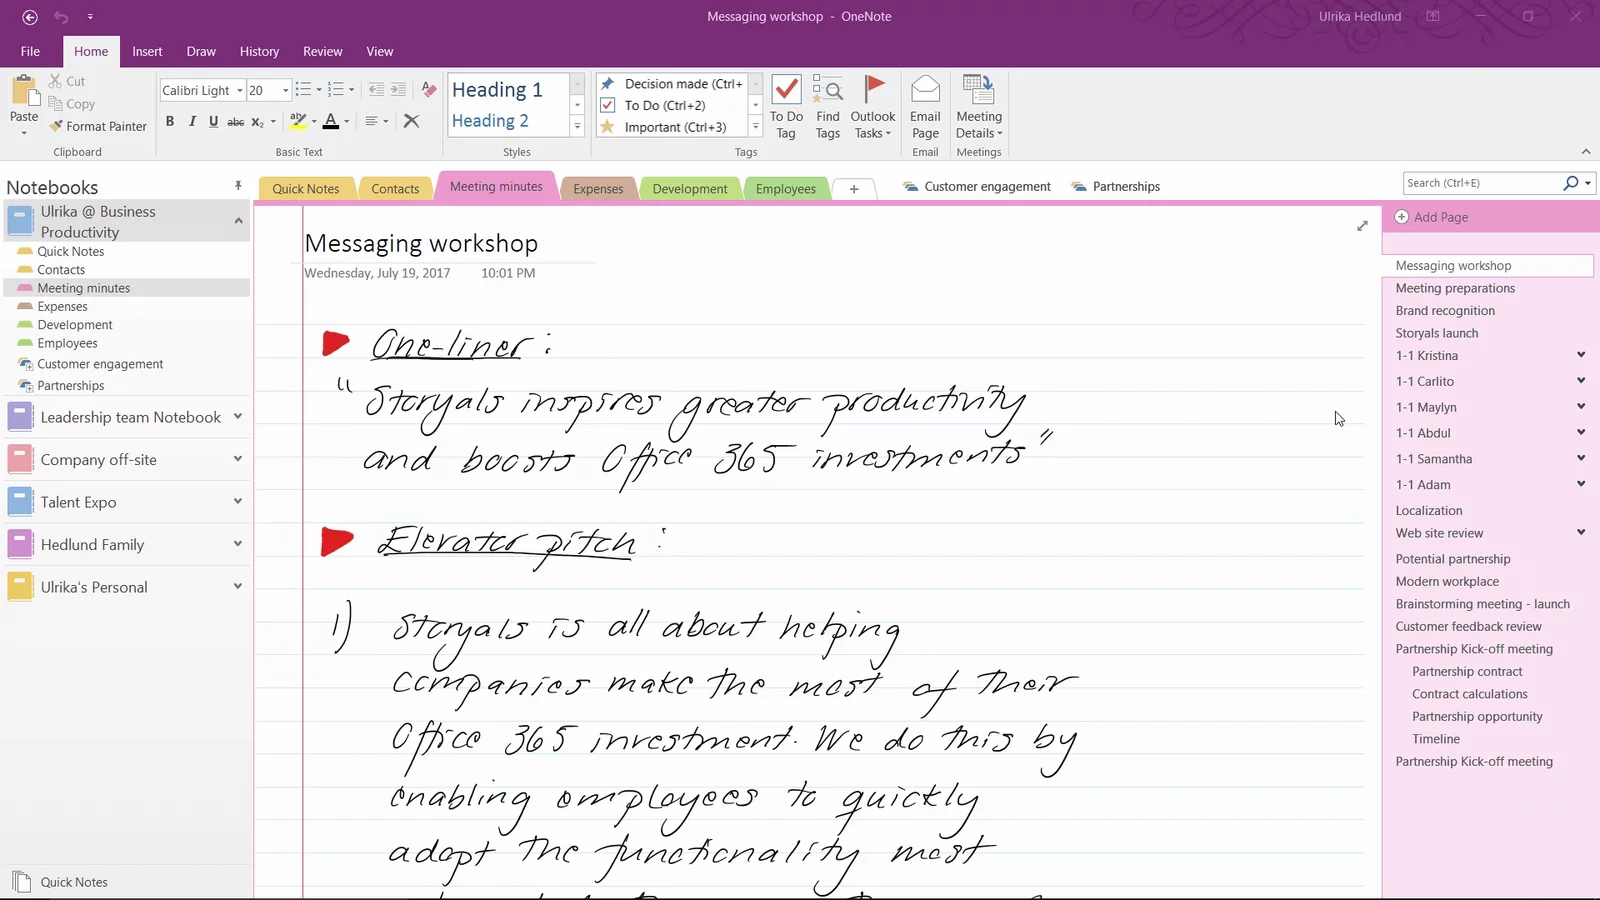 Messaging workshop - OneNote
Ulrika Hedlund
File Home Insert Draw History Review View
Paste
Cut
Copy
Format Painter
Clipboard
Calibri Light 20
B I U abc X₂ A
Basic Text
Heading 1
Heading 2
Styles
Decision made (Ctrl+
To Do (Ctrl+2)
Important (Ctrl+3)
To Do Tag
Find Tags
Outlook Tasks
Tags
Email Page
Email
Meeting Details
Meetings
Notebooks
Ulrika @ Business
Productivity
Quick Notes
Contacts
Meeting minutes
Expenses
Development
Employees
Customer engagement
Partnerships
Leadership team Notebook
Company off-site
Talent Expo
Hedlund Family
Ulrika's Personal
Quick Notes
Quick Notes Contacts Meeting minutes Expenses Development Employees + Customer engagement Partnerships
Search (Ctrl+E)
Messaging workshop
Wednesday, July 19, 2017 10:01 PM
One-liner :
"Storyals inspires greater productivity
and boosts Office 365 investments"
Elevator pitch :
1) Storyals is all about helping
companies make the most of their
Office 365 investment. We do this by
enabling employees to quickly
adopt the functionality most
Add Page
Messaging workshop
Meeting preparations
Brand recognition
Storyals launch
1-1 Kristina
1-1 Carlito
1-1 Maylyn
1-1 Abdul
1-1 Samantha
1-1 Adam
Localization
Web site review
Potential partnership
Modern workplace
Brainstorming meeting - launch
Customer feedback review
Partnership Kick-off meeting
Partnership contract
Contract calculations
Partnership opportunity
Timeline
Partnership Kick-off meeting